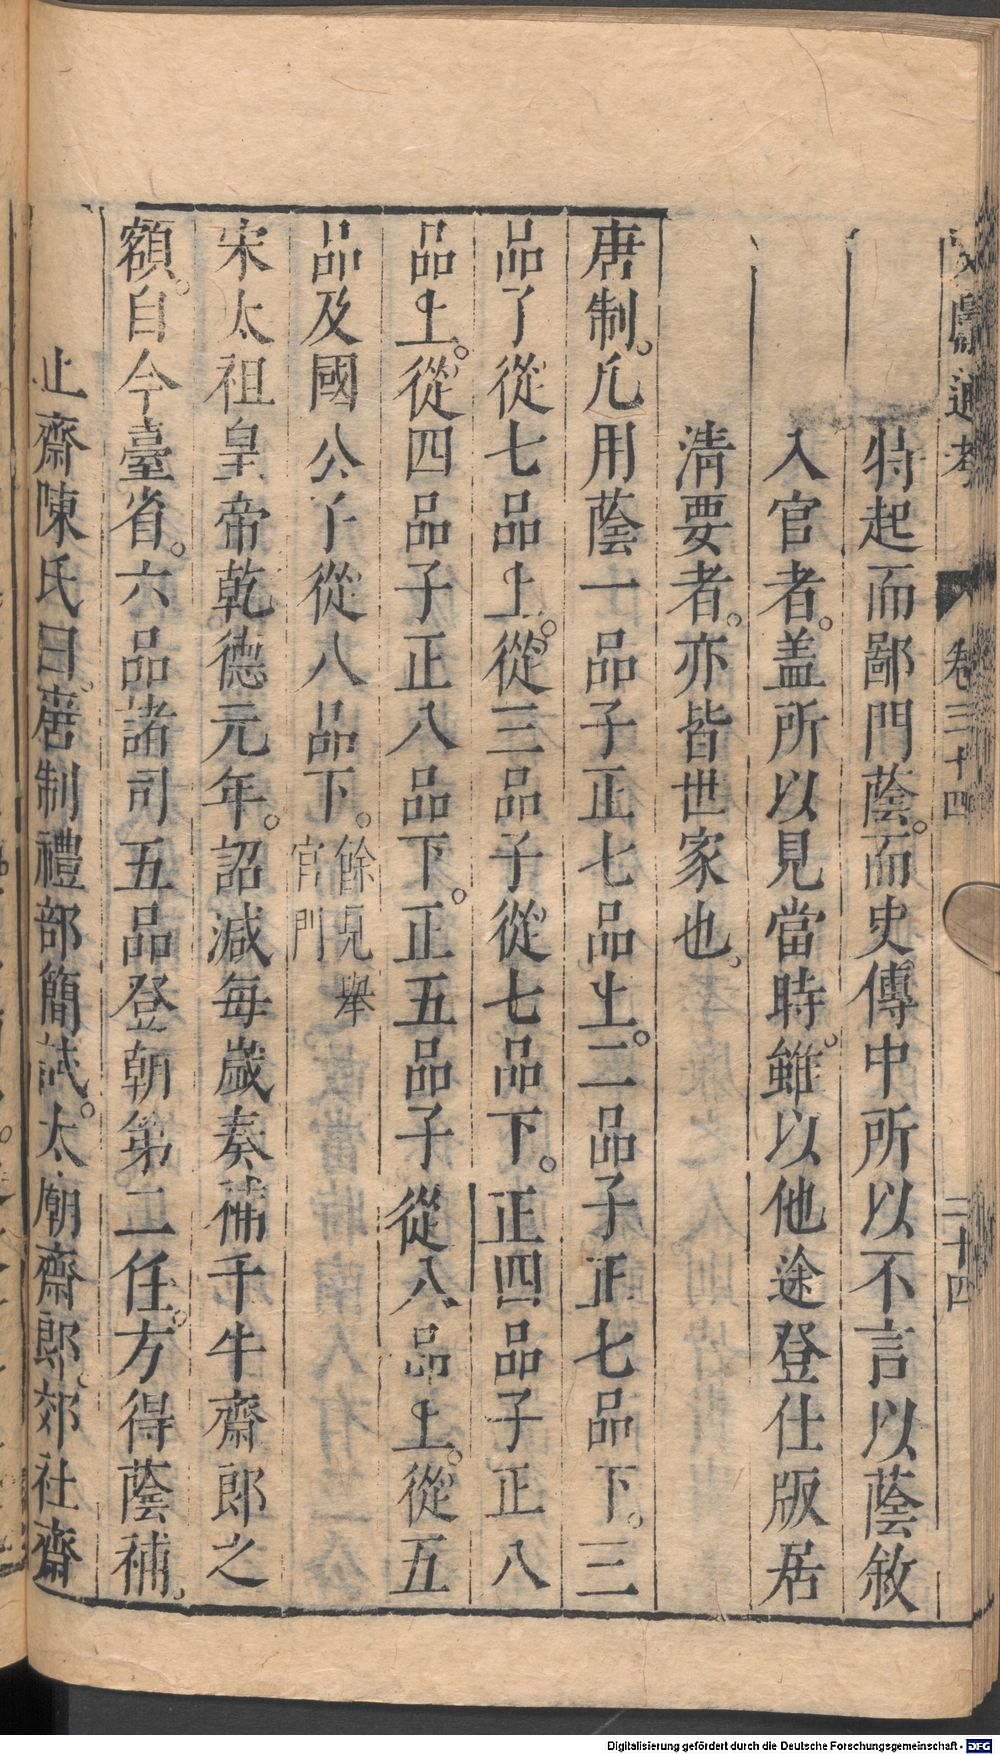 文獻通考 卷三十四 二十四
特起而鄙門蔭。而史傳中所以不言以蔭敘
入官者。盖所以見當時。雖以他途登仕版居
清要者。亦皆世家也。
唐制。凡用蔭一品子正七品上。二品子正七品下。三
品子從七品上。從三品子從七品下。正四品子正八
品上。從四品子正八品下。正五品子從八品上。從五
品及國公子從八品下。餘見舉官門
宋太祖皇帝乾德元年。詔減每歲奏補千牛齋郎之
額。自今臺省。六品諸司五品登朝第二任。方得蔭補。
止齋陳氏曰。唐制禮部簡試。太廟齋郎。郊社齋
Digitalisierung gefördert durch die Deutsche Forschungsgemeinschaft - DFG